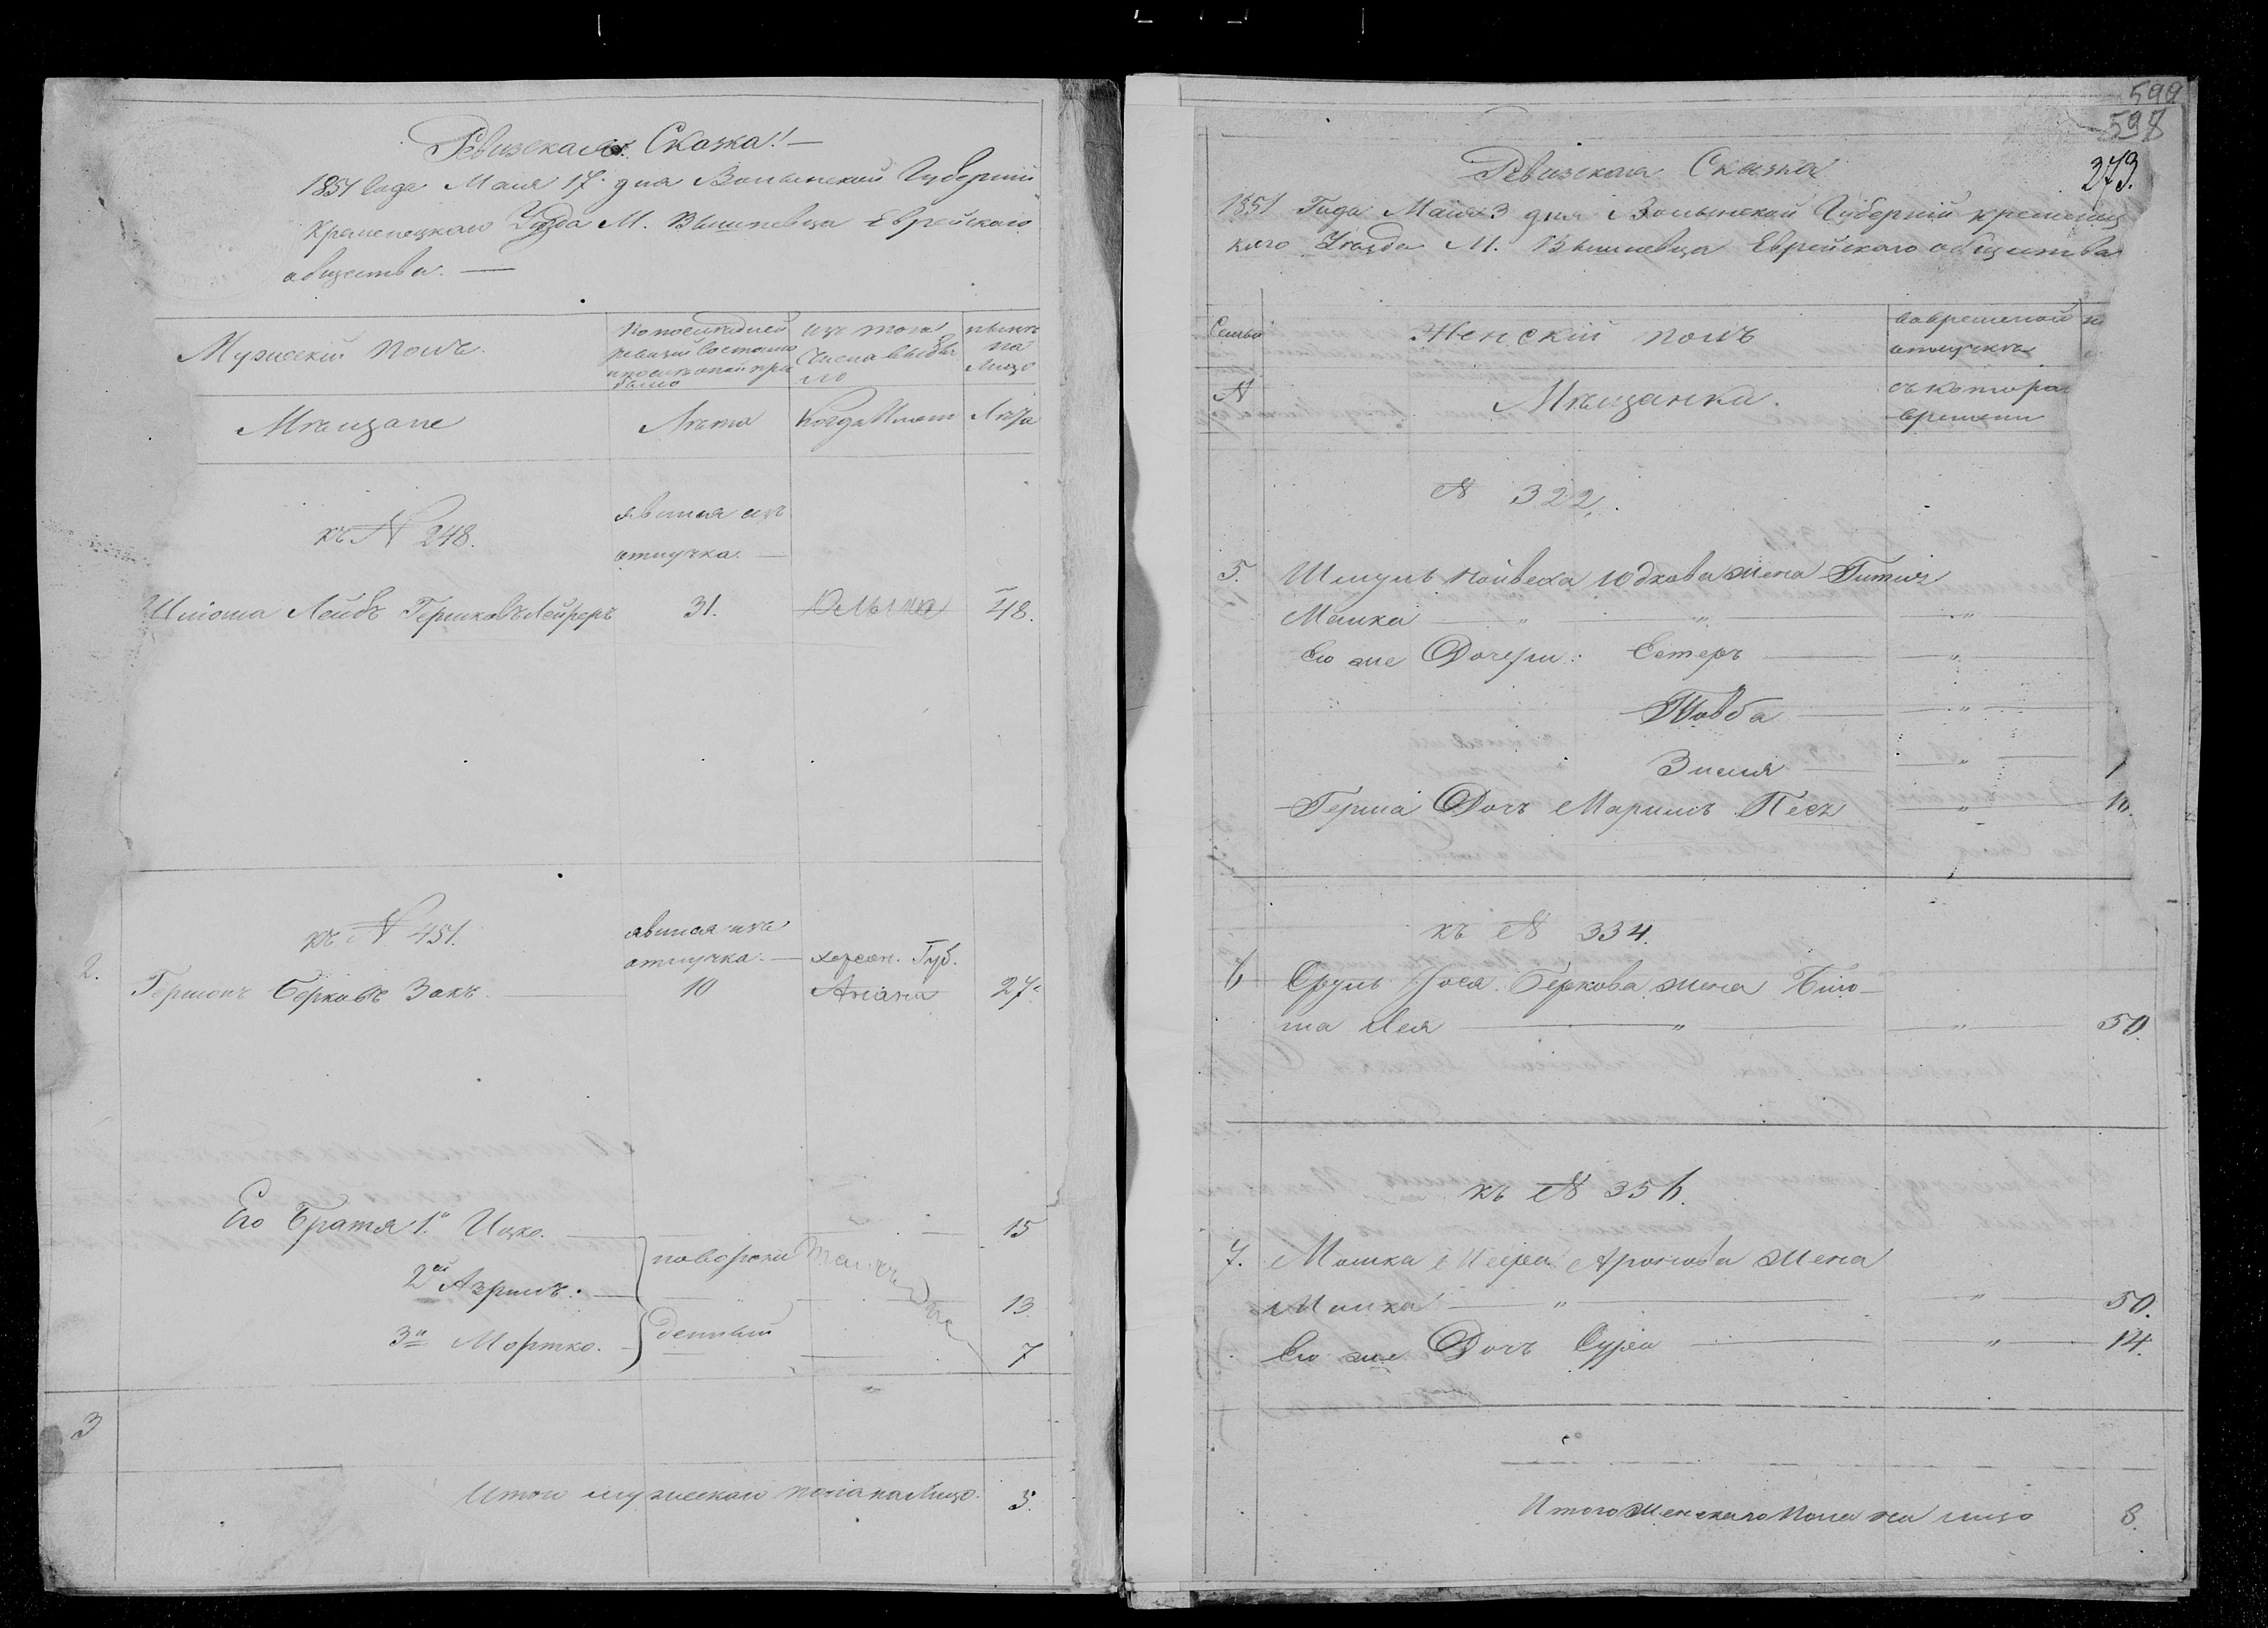 Ревизская Сказка!
1851 Года Мая 17 дня Волынской Губерніи
Кременецкаго Уѣзда М. Вышневца Еврейскаго
общества.
Мужескій полъ.
По последней
ревизіи состояло
и после оной при
было
изъ того
числа выбы
ло
нынѣ
на
лицо
Мѣщане
Лѣта
Когда Имен
Лѣта
къ № 248.
явился изъ
отлучка.
Шлома Лейбъ Гершковъ
31.
48.
къ № 451.
явился изъ
отлучка.
херсон. Губ.
2.
Гершонъ Берковъ Закъ
10
27
Его Братья 1й Ицко.
15
новорож
2й Азриль.
13
3й Мортко.
денный
7
3
Итого мужескаго пола на лицо.
5.
599
598
273.
Ревизская Сказка
1851 Года Мая 3 дня Волынской Губерніи кременец
каго Уѣзда М. Вышневца Еврейскаго общества
Семьи
Женскій полъ
вовременной
отлучкѣ
№
Мѣщанки.
съ котора
времени
№ 322.
5.
Шмуль Пойвеха Юдкова жена Гитля
Малка
Его же Дочери: Естеръ
Товба
Зисля
1
Герша Дочь Маримъ Песъ
10.
къ № 334.
6
Сруль Іося Беркова жена Блю
ма Лея
50.
къ № 356.
7.
Мошка Меера Аронова жена
Малка
50.
Его же Дочь Сура
14.
Итого женскаго пола на лицо
8.